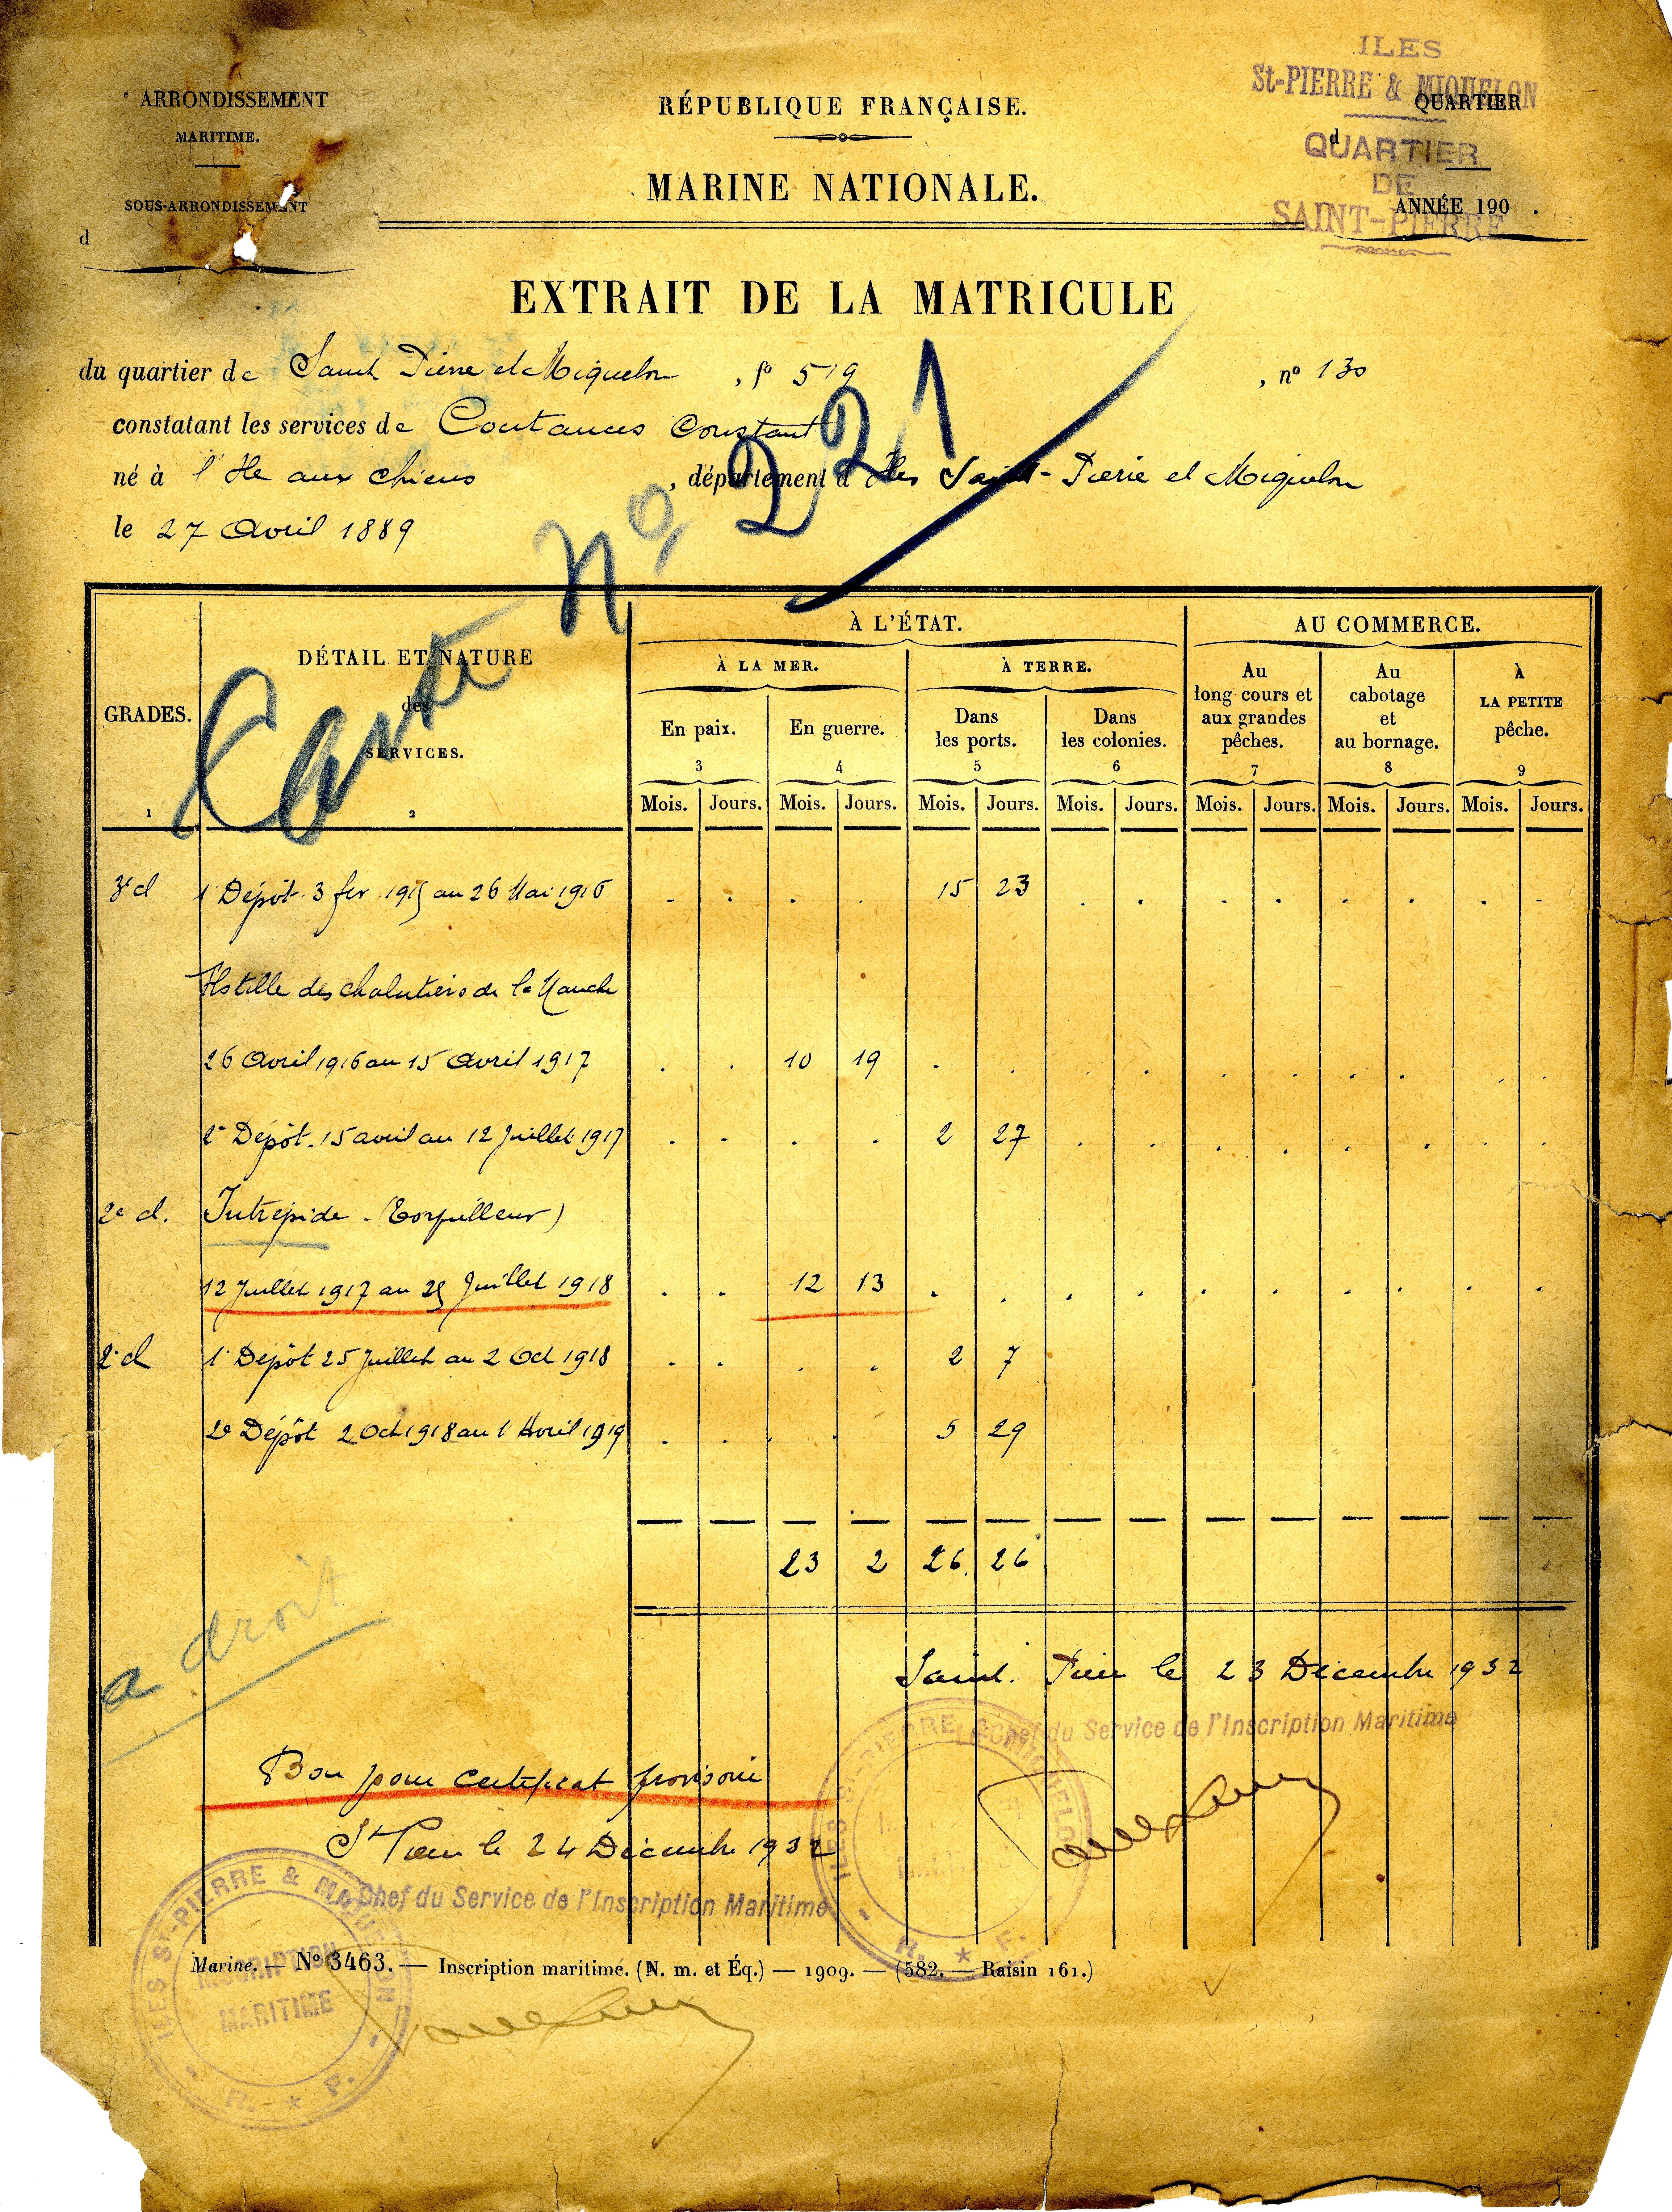 ARRONDISSEMENT
MARITIME.
SOUS-ARRONDISSEMENT
d
RÉPUBLIQUE FRANÇAISE.
MARINE NATIONALE.
ILES
St-PIERRE & MIQUELON
QUARTIER
d
QUARTIER
DE
SAINT-PIERRE
ANNÉE 190 .
EXTRAIT DE LA MATRICULE
du quartier de Saint Pierre et Miquelon , fo 519 , no 130
constatant les services de Coutances Constant
né à l'Ile aux chiens , département d Iles Saint-Pierre et Miquelon
le 27 Avril 1889
Carte No 221
GRADES.
1
DÉTAIL ET NATURE
des
SERVICES.
2
À L'ÉTAT.
AU COMMERCE.
À LA MER.
À TERRE.
En paix.
3
En guerre.
4
Dans
les ports.
5
Dans
les colonies.
6
Au
long cours et
aux grandes
pêches.
7
Au
cabotage
et
au bornage.
8
À
LA PETITE
pêche.
9
Mois. Jours. Mois. Jours. Mois. Jours. Mois. Jours. Mois. Jours. Mois. Jours. Mois. Jours.
3e cl 1 Dépôt. 3 fev 1915 au 26 Mai 1916 15 23
Flotille des chalutiers de la Manche
26 Avril 1916 au 15 Avril 1917 10 19
2e Dépôt. 15 avril au 12 Juillet 1917 2 27
2e cl. Intrépide - (Torpilleur)
12 Juillet 1917 au 25 Juillet 1918 12 13
2e cl 1 Dépôt 25 Juillet au 2 Oct 1918 2 7
2e Dépôt 2 Oct 1918 au 1 Avril 1919 5 29
23 2 26 26
a droit
Saint. Pierre le 23 Décembre 1932
Le Chef du Service de l'Inscription Maritime
ILES St-PIERRE & MIQUELON
R. * F.
Bon pour certificat provisoire
St Pierre le 24 Décembre 1932
Chef du Service de l'Inscription Maritime
ILES St-PIERRE & MIQUELON
INSCRIPTION
MARITIME
R. * F.
Marine. — No 3463. — Inscription maritime. (N. m. et Éq.) — 1909. — (582. — Raisin 161.)